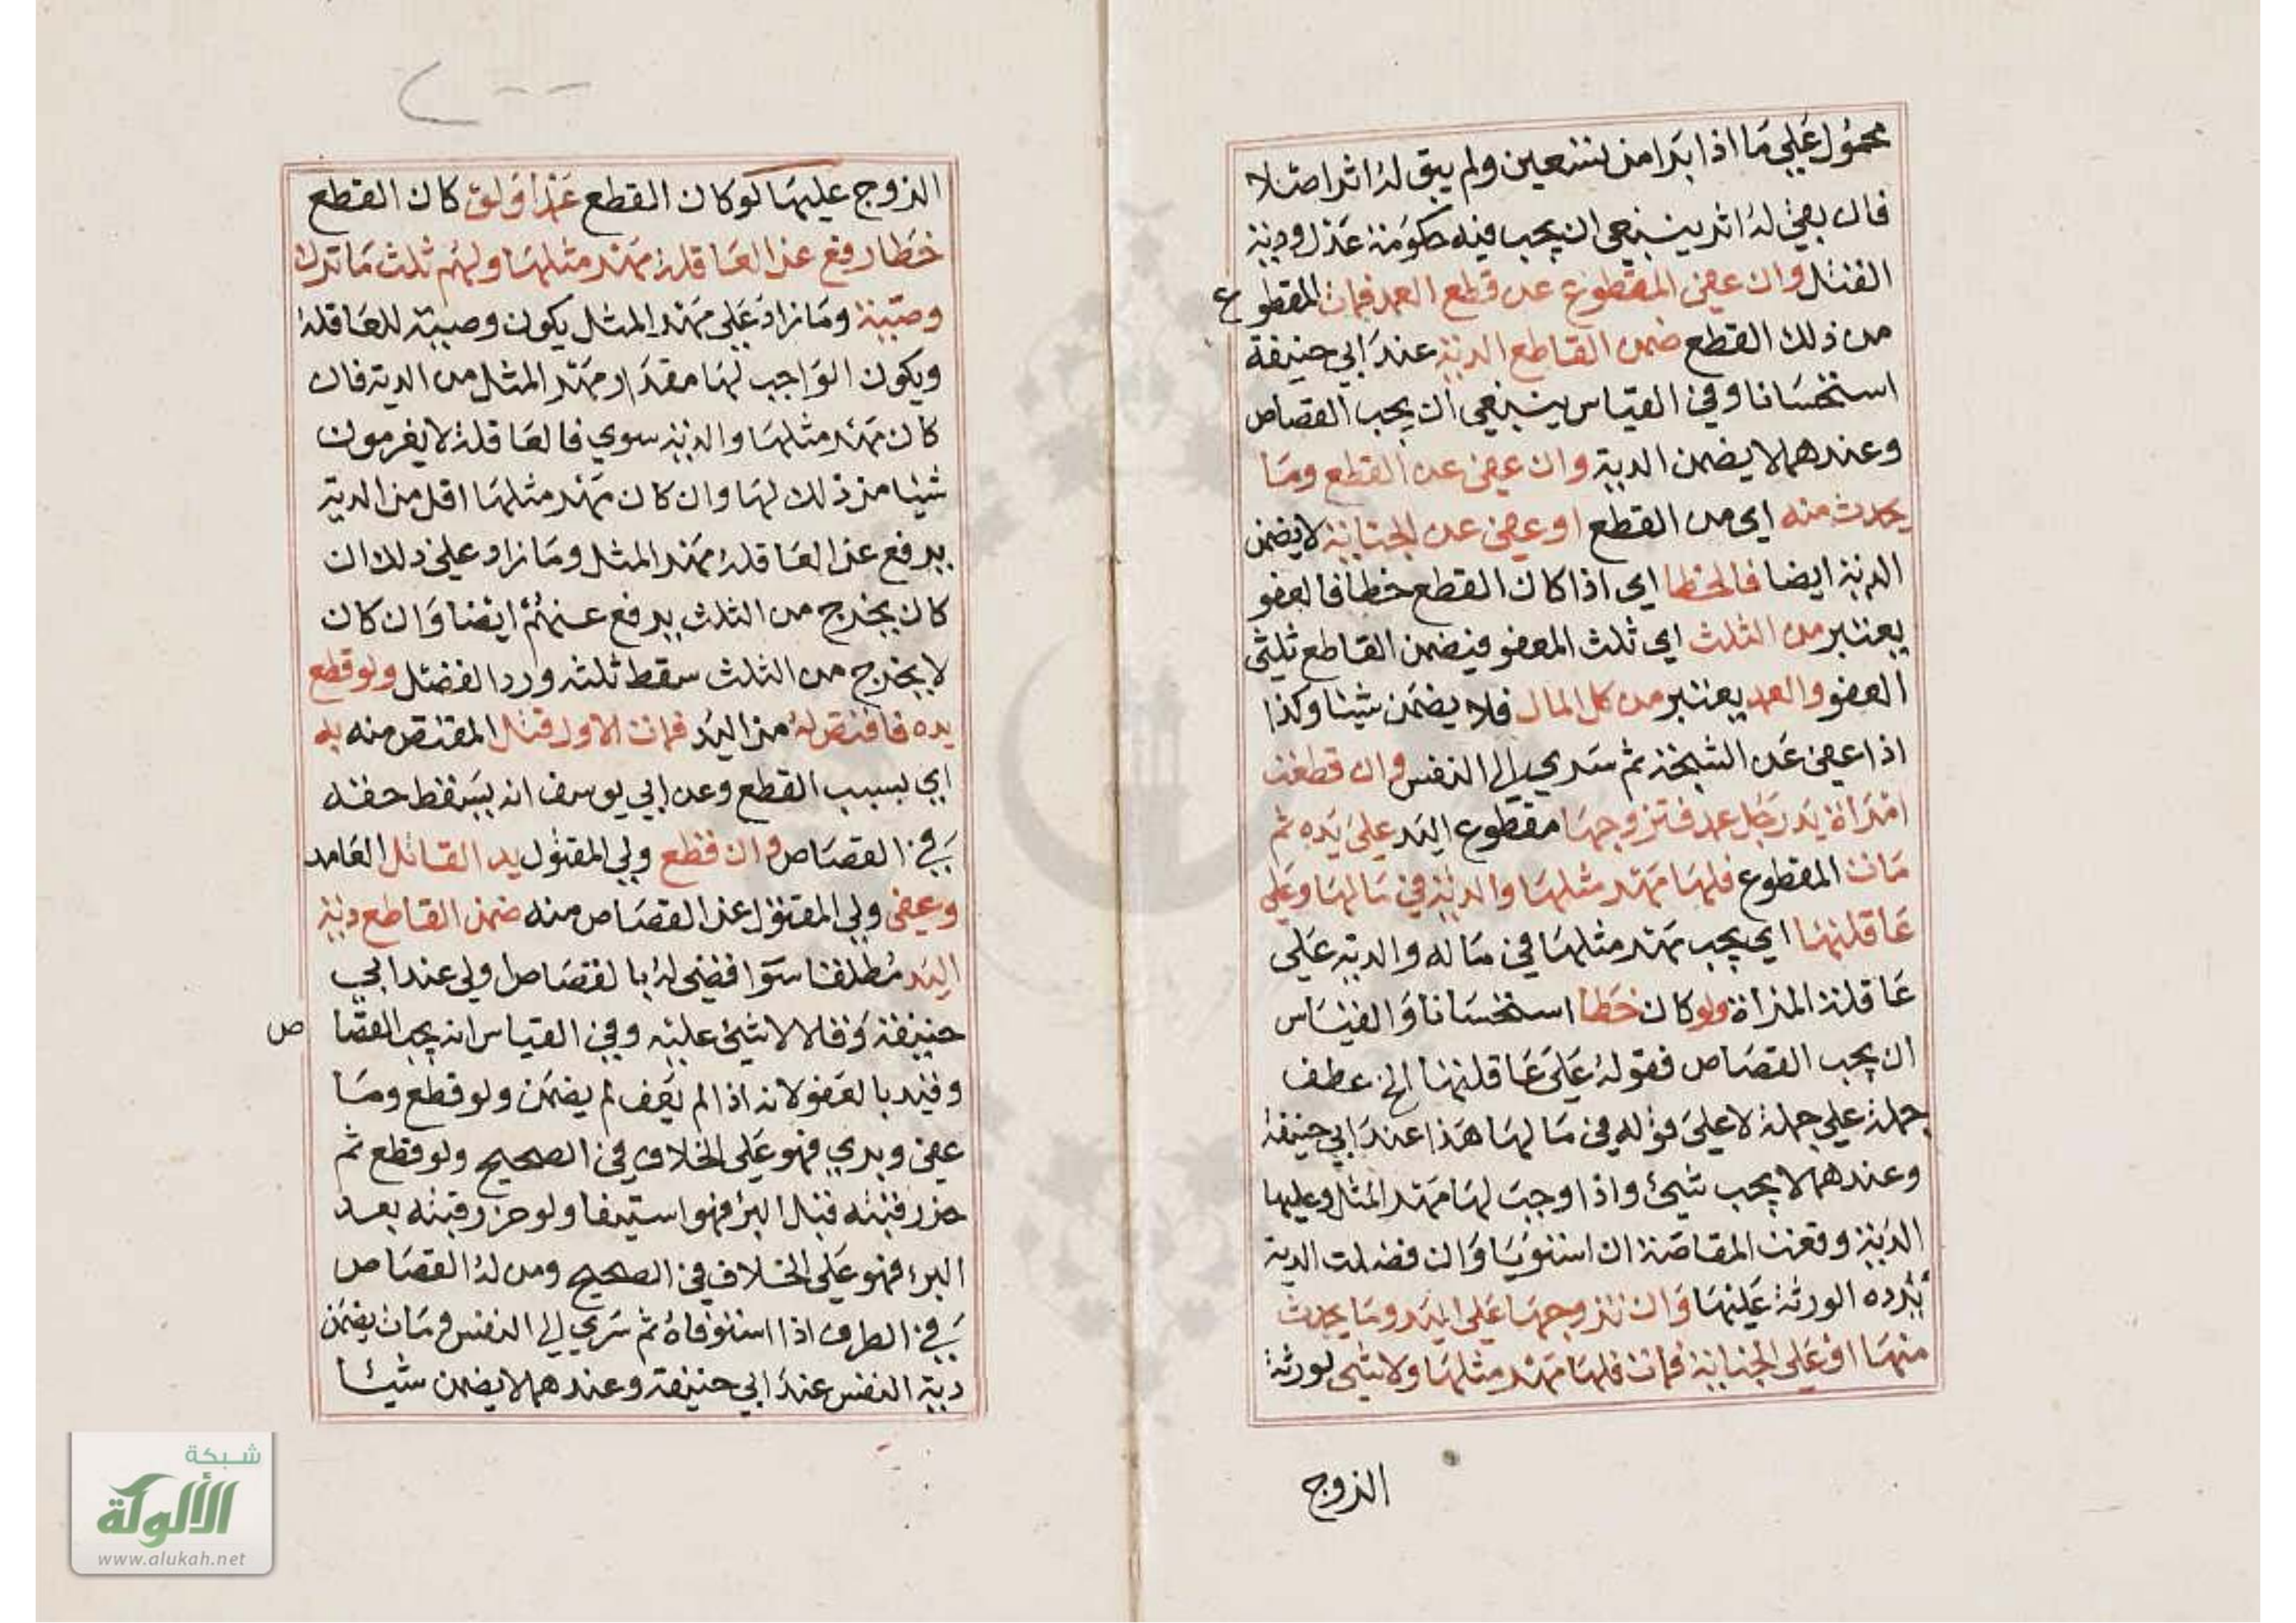 محمول علي ما اذا برا من تسعين ولم يبق له اثر اصلا
فان بقي له اثر ينبغي ان يجب فيه حكومة عدل ودية
القتل وان عفى المقطوع عن قطع العمد فمات المقطوع
من ذلك القطع ضمن القاطع الدية عند ابي حنيفة
استحسانا وفي القياس ينبغي ان يجب القصاص
وعندهما لا يضمن الدية وان عفى عن القطع وما
يحدث منه اي من القطع او عفى عن الجناية لا يضمن
الدية ايضا فالخطا اي اذا كان القطع خطأ فالعفو
يعتبر من الثلث اي ثلث المعفو فيضمن القاطع ثلثي
العفو والعمد يعتبر من كل المال فلا يضمن شيئا وكذا
اذا عفى عن الشجة ثم سري الي النفس وان قطعت
امراة يد رجل عمد فتزوجها مقطوع اليد علي يده ثم
مات المقطوع فلها مهر مثلها والدية في مالها وعلي
عاقلتها اي يجب مهر مثلها في ماله والدية علي
عاقلة المراة ولو كان خطأ استحسانا والقياس
ان يجب القصاص فقوله علي عاقلتها الخ عطف
جملة علي جملة لا علي قوله في مالها هذا عند ابي حنيفة
وعندهما لا يجب شيئ واذا وجب لها مهر المثل وعليها
الدية وقعت المقاصة ان استويا وان فضلت الدية
ترده الورثة عليها وان تزوجها علي اليد وما يحدث
منها او علي الجناية فمات فلها مهر مثلها ولا شيئ لورثة
الزوج
الزوج عليها لو كان القطع عمدا ولو كان القطع
خطا رفع عن العاقلة مهر مثلها ولهم ثلث ما ترك
وصية وما زاد علي مهر المثل يكون وصية للعاقلة
ويكون الواجب لها مقدار مهر المثل من الدية فان
كان مهر مثلها والدية سوي فالعاقلة لا يغرمون
شيئا من ذلك لها وان كان مهر مثلها اقل من الدية
يرفع عن العاقلة مهر المثل وما زاد علي ذلك ان
كان يخرج من الثلث يرفع عنهم ايضا وان كان
لا يخرج من الثلث سقط ثلثه ورد الفضل ولو قطع
يده فاقتص له من اليد فمات الاول قتل المقتص منه به
اي بسبب القطع وعن ابي يوسف انه يسقط حقه
في القصاص وان قطع ولي المقتول يد القاتل العامد
وعفى ولي المقتول عن القصاص منه ضمن القاطع دية
اليد مطلقا سوا قضي له بالقصاص اولى عند ابي
حنيفة وقالا لا شيئ عليه وفي القياس انه يجب القصاص
وقيد بالعفو لانه اذا لم يعف لم يضمن ولو قطع وما
عفى وبري فهو علي الخلاف في الصحيح ولو قطع ثم
حز رقبته قبل البرء فهو استيفا ولو حز رقبته بعد
البرء فهو علي الخلاف في الصحيح ومن له القصاص
في الطرف اذا استوفاه ثم سري الي النفس ومات يضمن
دية النفس عند ابي حنيفة وعندهما لا يضمن شيئا
شبكة
الألوكة
www.alukah.net